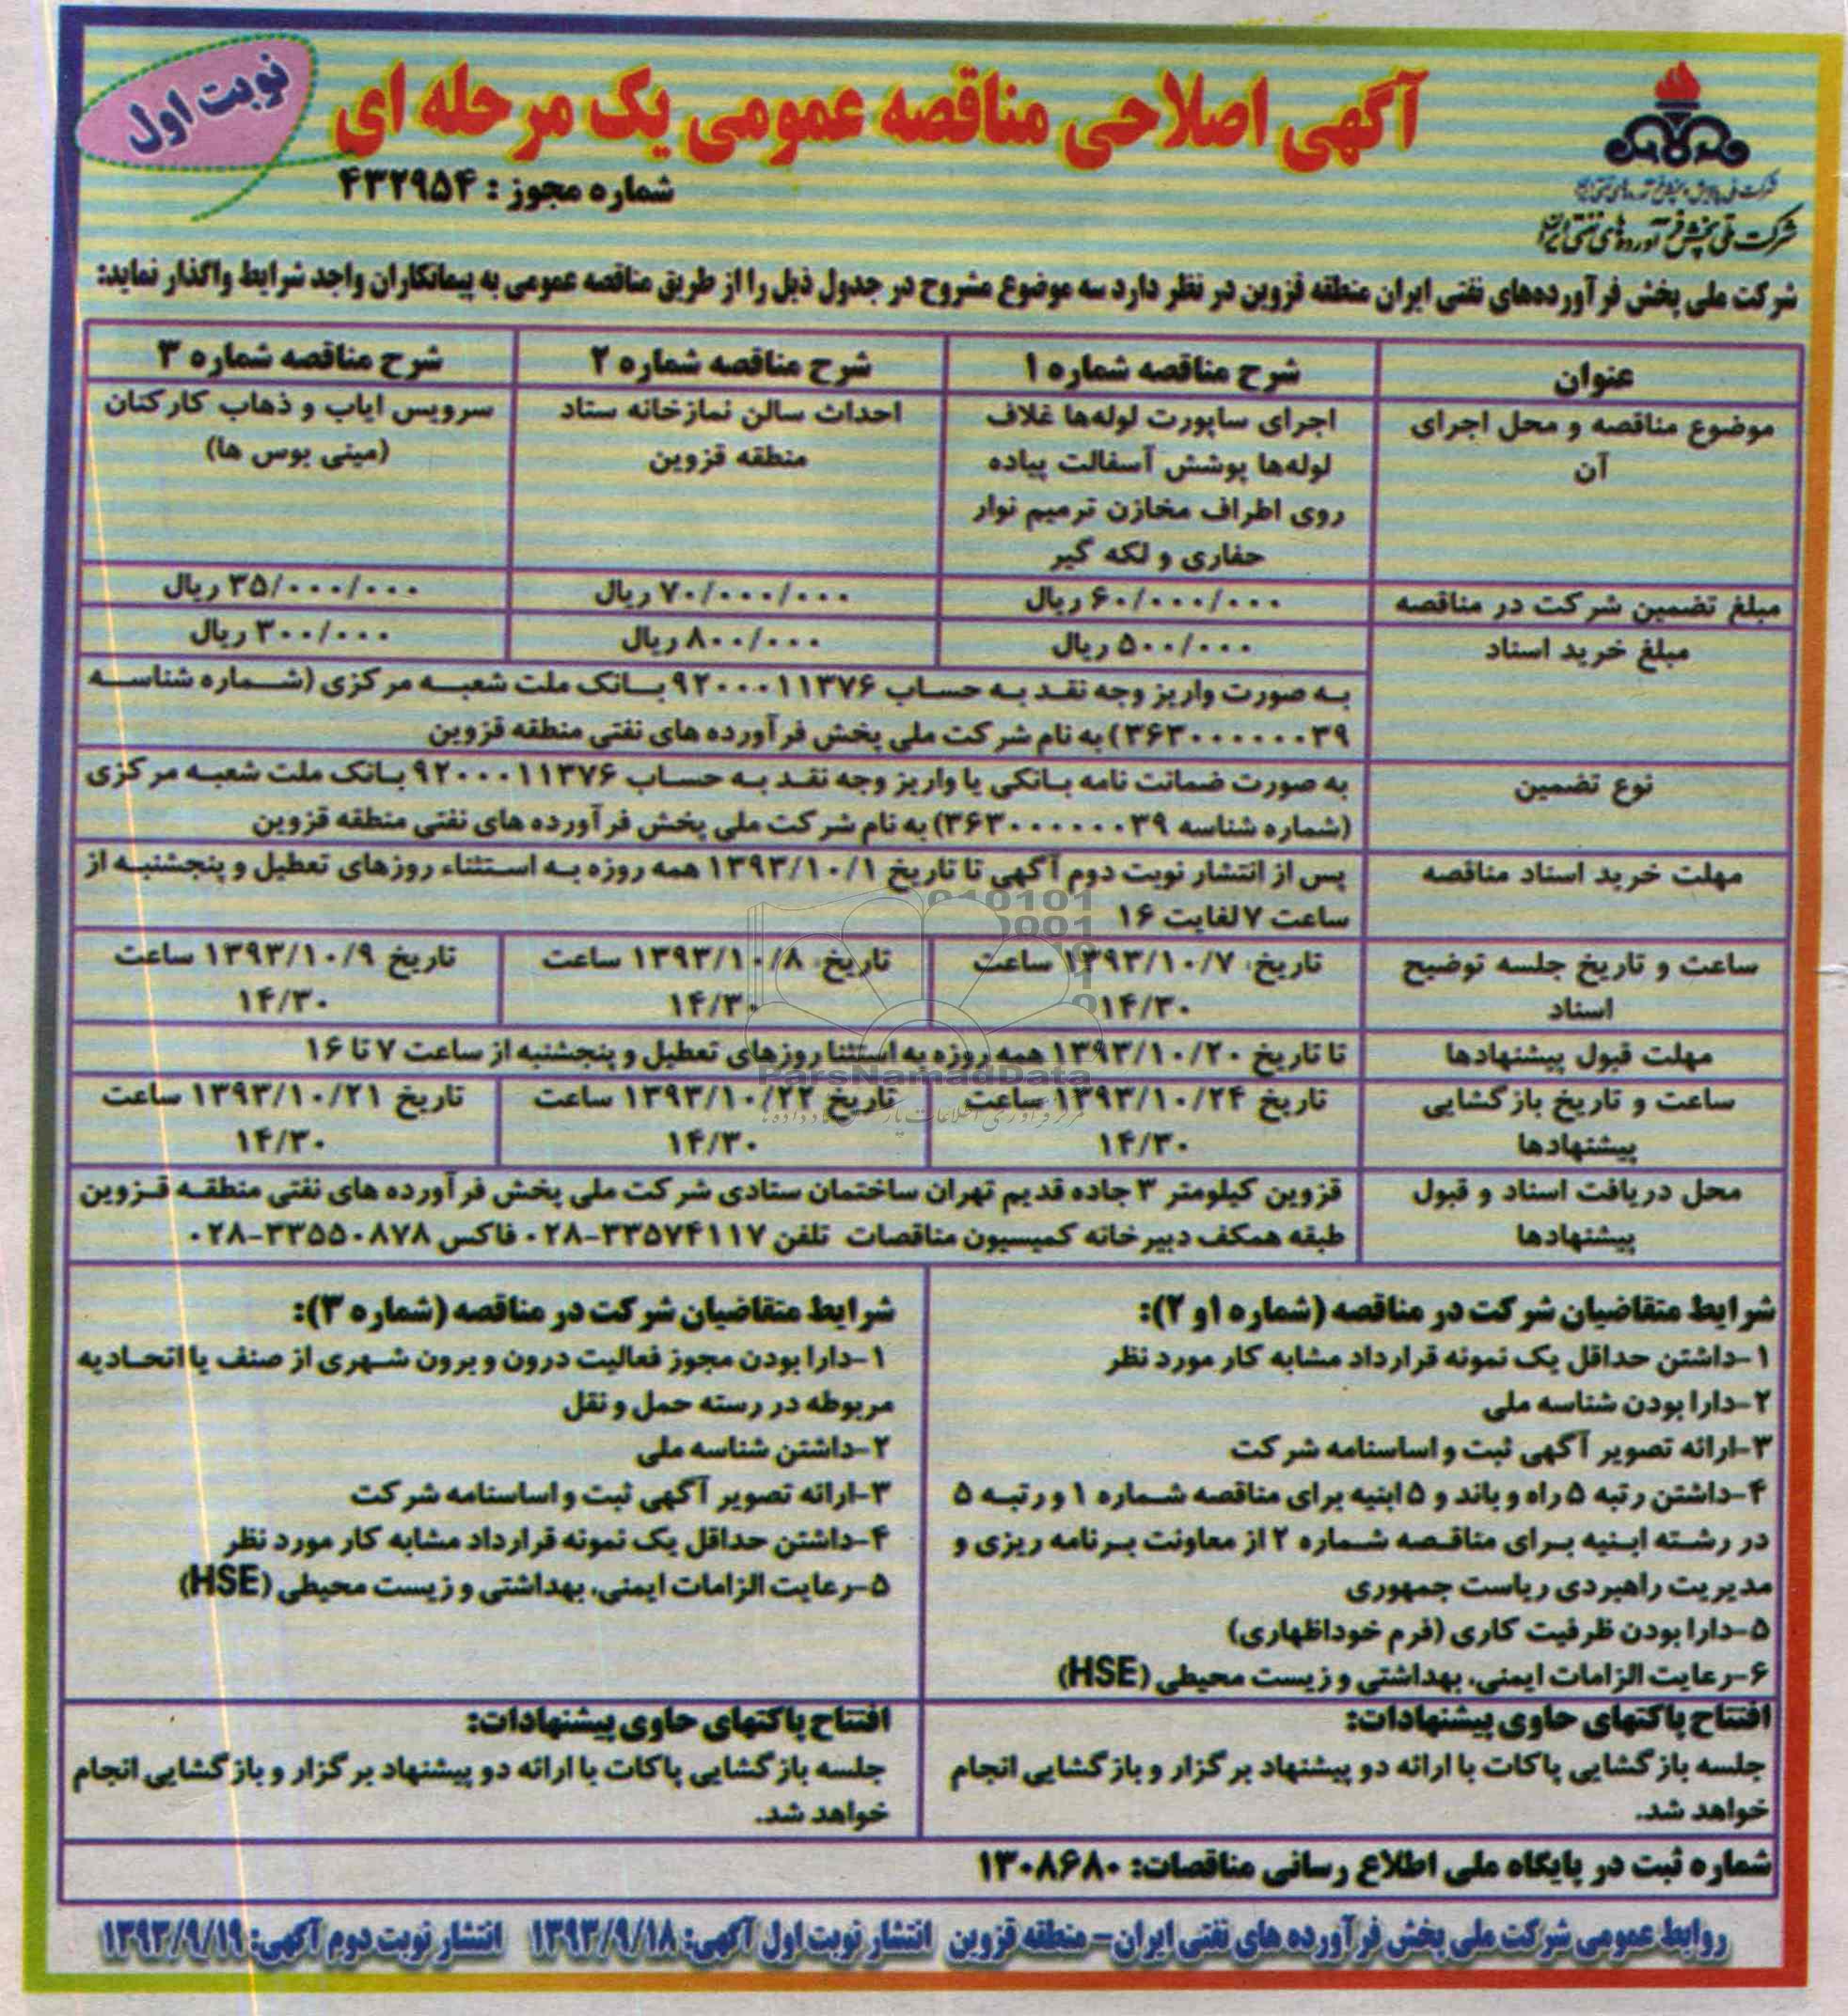 نوبت اول
آگهی اصلاحی مناقصه عمومی یک مرحله ای
شماره مجوز : ۴۳۲۹۵۴
شرکت ملی پالایش و پخش فرآورده‌های نفتی ایران
شرکت ملی پخش فرآورده‌های نفتی ایران
شرکت ملی پخش فرآورده‌های نفتی ایران منطقه قزوین در نظر دارد سه موضوع مشروح در جدول ذیل را از طریق مناقصه عمومی به پیمانکاران واجد شرایط واگذار نماید:
عنوان
شرح مناقصه شماره ۱
شرح مناقصه شماره ۲
شرح مناقصه شماره ۳
موضوع مناقصه و محل اجرای
آن
اجرای ساپورت لوله‌ها غلاف
لوله‌ها پوشش آسفالت پیاده
روی اطراف مخازن ترمیم نوار
حفاری و لکه گیر
احداث سالن نمازخانه ستاد
منطقه قزوین
سرویس ایاب و ذهاب کارکنان
(مینی بوس ها)
مبلغ تضمین شرکت در مناقصه
۶۰/۰۰۰/۰۰۰ ریال
۷۰/۰۰۰/۰۰۰ ریال
۳۵/۰۰۰/۰۰۰ ریال
مبلغ خرید اسناد
۵۰۰/۰۰۰ ریال
۸۰۰/۰۰۰ ریال
۳۰۰/۰۰۰ ریال
به صورت واریز وجه نقد به حساب ۹۲۰۰۰۰۱۱۳۷۶ بانک ملت شعبه مرکزی (شماره شناسه
۳۶۳۰۰۰۰۰۰۰۳۹) به نام شرکت ملی پخش فرآورده های نفتی منطقه قزوین
نوع تضمین
به صورت ضمانت نامه بانکی یا واریز وجه نقد به حساب ۹۲۰۰۰۰۱۱۳۷۶ بانک ملت شعبه مرکزی
(شماره شناسه ۳۶۳۰۰۰۰۰۰۰۳۹) به نام شرکت ملی پخش فرآورده های نفتی منطقه قزوین
مهلت خرید اسناد مناقصه
پس از انتشار نوبت دوم آگهی تا تاریخ ۱۳۹۳/۱۰/۱ همه روزه به استثناء روزهای تعطیل و پنجشنبه از
ساعت ۷ لغایت ۱۶
ساعت و تاریخ جلسه توضیح
اسناد
تاریخ ۱۳۹۳/۱۰/۷ ساعت
۱۴/۳۰
تاریخ ۱۳۹۳/۱۰/۸ ساعت
۱۴/۳۰
تاریخ ۱۳۹۳/۱۰/۹ ساعت
۱۴/۳۰
مهلت قبول پیشنهادها
تا تاریخ ۱۳۹۳/۱۰/۲۰ همه روزه به استثنا روزهای تعطیل و پنجشنبه از ساعت ۷ تا ۱۶
ساعت و تاریخ بازگشایی
پیشنهادها
تاریخ ۱۳۹۳/۱۰/۲۴ ساعت
۱۴/۳۰
تاریخ ۱۳۹۳/۱۰/۲۲ ساعت
۱۴/۳۰
تاریخ ۱۳۹۳/۱۰/۲۱ ساعت
۱۴/۳۰
ParsNamadData
محل دریافت اسناد و قبول
پیشنهادها
قزوین کیلومتر ۳ جاده قدیم تهران ساختمان ستادی شرکت ملی پخش فرآورده های نفتی منطقه قزوین
طبقه همکف دبیرخانه کمیسیون مناقصات تلفن ۳۳۵۷۴۱۱۷-۰۲۸ فاکس ۳۳۵۵۰۸۷۸-۰۲۸
شرایط متقاضیان شرکت در مناقصه (شماره ۱و ۲):
۱-داشتن حداقل یک نمونه قرارداد مشابه کار مورد نظر
۲-دارا بودن شناسه ملی
۳-ارائه تصویر آگهی ثبت و اساسنامه شرکت
۴-داشتن رتبه ۵ راه و باند و ۵ ابنیه برای مناقصه شماره ۱ و رتبه ۵
در رشته ابنیه برای مناقصه شماره ۲ از معاونت برنامه ریزی و
مدیریت راهبردی ریاست جمهوری
۵-دارا بودن ظرفیت کاری (فرم خوداظهاری)
۶-رعایت الزامات ایمنی، بهداشتی و زیست محیطی (HSE)
شرایط متقاضیان شرکت در مناقصه (شماره ۳):
۱-دارا بودن مجوز فعالیت درون و برون شهری از صنف یا اتحادیه
مربوطه در رسته حمل و نقل
۲-داشتن شناسه ملی
۳-ارائه تصویر آگهی ثبت و اساسنامه شرکت
۴-داشتن حداقل یک نمونه قرارداد مشابه کار مورد نظر
۵-رعایت الزامات ایمنی، بهداشتی و زیست محیطی (HSE)
افتتاح پاکتهای حاوی پیشنهادات:
جلسه بازگشایی پاکات با ارائه دو پیشنهاد برگزار و بازگشایی انجام
خواهد شد.
افتتاح پاکتهای حاوی پیشنهادات:
جلسه بازگشایی پاکات با ارائه دو پیشنهاد برگزار و بازگشایی انجام
خواهد شد.
شماره ثبت در پایگاه ملی اطلاع رسانی مناقصات: ۱۳۰۸۶۸۰
روابط عمومی شرکت ملی پخش فرآورده های نفتی ایران- منطقه قزوین انتشار نوبت اول آگهی: ۱۳۹۳/۹/۱۸ انتشار نوبت دوم آگهی: ۱۳۹۳/۹/۱۹